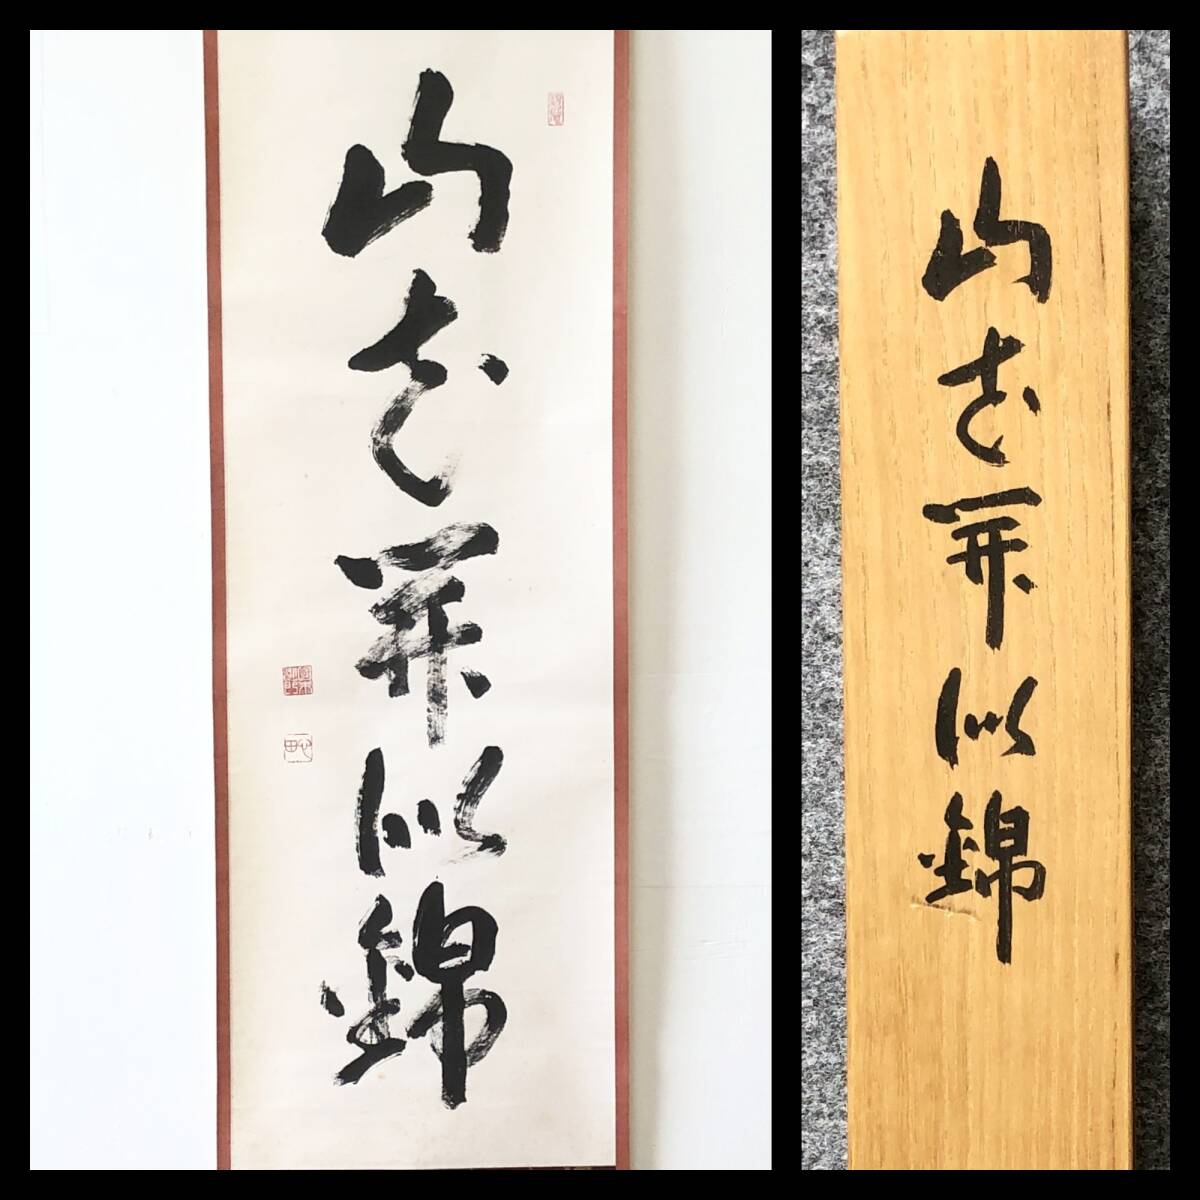 山花開似錦
山花開似錦